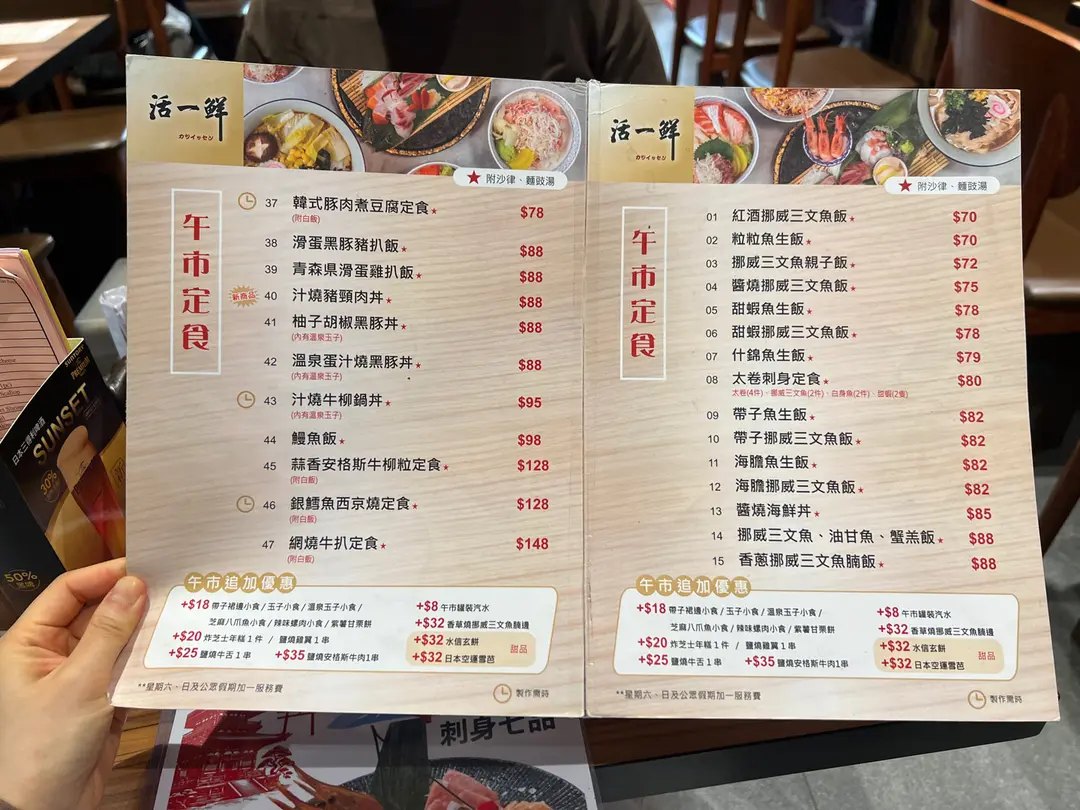 活一鮮
カツイッセン
★ 附沙律、麵豉湯
午市定食
37 韓式豚肉煮豆腐定食★ $78
(附白飯)
38 滑蛋黑豚豬扒飯★ $88
39 青森県滑蛋雞扒飯★ $88
新商品 40 汁燒豬頸肉丼★ $88
41 柚子胡椒黑豚丼★ $88
(內有溫泉玉子)
42 溫泉蛋汁燒黑豚丼★ $88
(內有溫泉玉子)
43 汁燒牛柳鍋丼★ $95
(內有溫泉玉子)
44 鰻魚飯★ $98
45 蒜香安格斯牛柳粒定食★ $128
(附白飯)
46 銀鱈魚西京燒定食★ $128
(附白飯)
47 網燒牛扒定食★ $148
(附白飯)
午市追加優惠
+$18 帶子裙邊小食 / 玉子小食 / 溫泉玉子小食 /
芝麻八爪魚小食 / 辣味螺肉小食 / 紫薯甘栗餅
+$20 炸芝士年糕 1 件 / 鹽燒雞翼 1 串
+$25 鹽燒牛舌 1 串 +$35 鹽燒安格斯牛肉1串
+$8 午市罐裝汽水
+$32 香草燒挪威三文魚腩邊
+$32 水信玄餅
+$32 日本空運雪芭
甜品
**星期六、日及公眾假期加一服務費
製作需時
活一鮮
カツイッセン
★ 附沙律、麵豉湯
午市定食
01 紅酒挪威三文魚飯★ $70
02 粒粒魚生飯★ $70
03 挪威三文魚親子飯★ $72
04 醬燒挪威三文魚飯★ $75
05 甜蝦魚生飯★ $78
06 甜蝦挪威三文魚飯★ $78
07 什錦魚生飯★ $79
08 太卷刺身定食★ $80
太卷(4件)、挪威三文魚(2件)、白身魚(2件)、甜蝦(2隻)
09 帶子魚生飯★ $82
10 帶子挪威三文魚飯★ $82
11 海膽魚生飯★ $82
12 海膽挪威三文魚飯★ $82
13 醬燒海鮮丼★ $85
14 挪威三文魚、油甘魚、蟹羔飯★ $88
15 香蔥挪威三文魚腩飯★ $88
午市追加優惠
+$18 帶子裙邊小食 / 玉子小食 / 溫泉玉子小食 /
芝麻八爪魚小食 / 辣味螺肉小食 / 紫薯甘栗餅
+$20 炸芝士年糕 1 件 / 鹽燒雞翼 1 串
+$25 鹽燒牛舌 1 串 +$35 鹽燒安格斯牛肉1串
+$8 午市罐裝汽水
+$32 香草燒挪威三文魚腩邊
+$32 水信玄餅
+$32 日本空運雪芭
甜品
**星期六、日及公眾假期加一服務費
製作需時
SUNTORY
PREMIUM
日本三得利啤酒
SUNSET
30%
50%
刺身七品